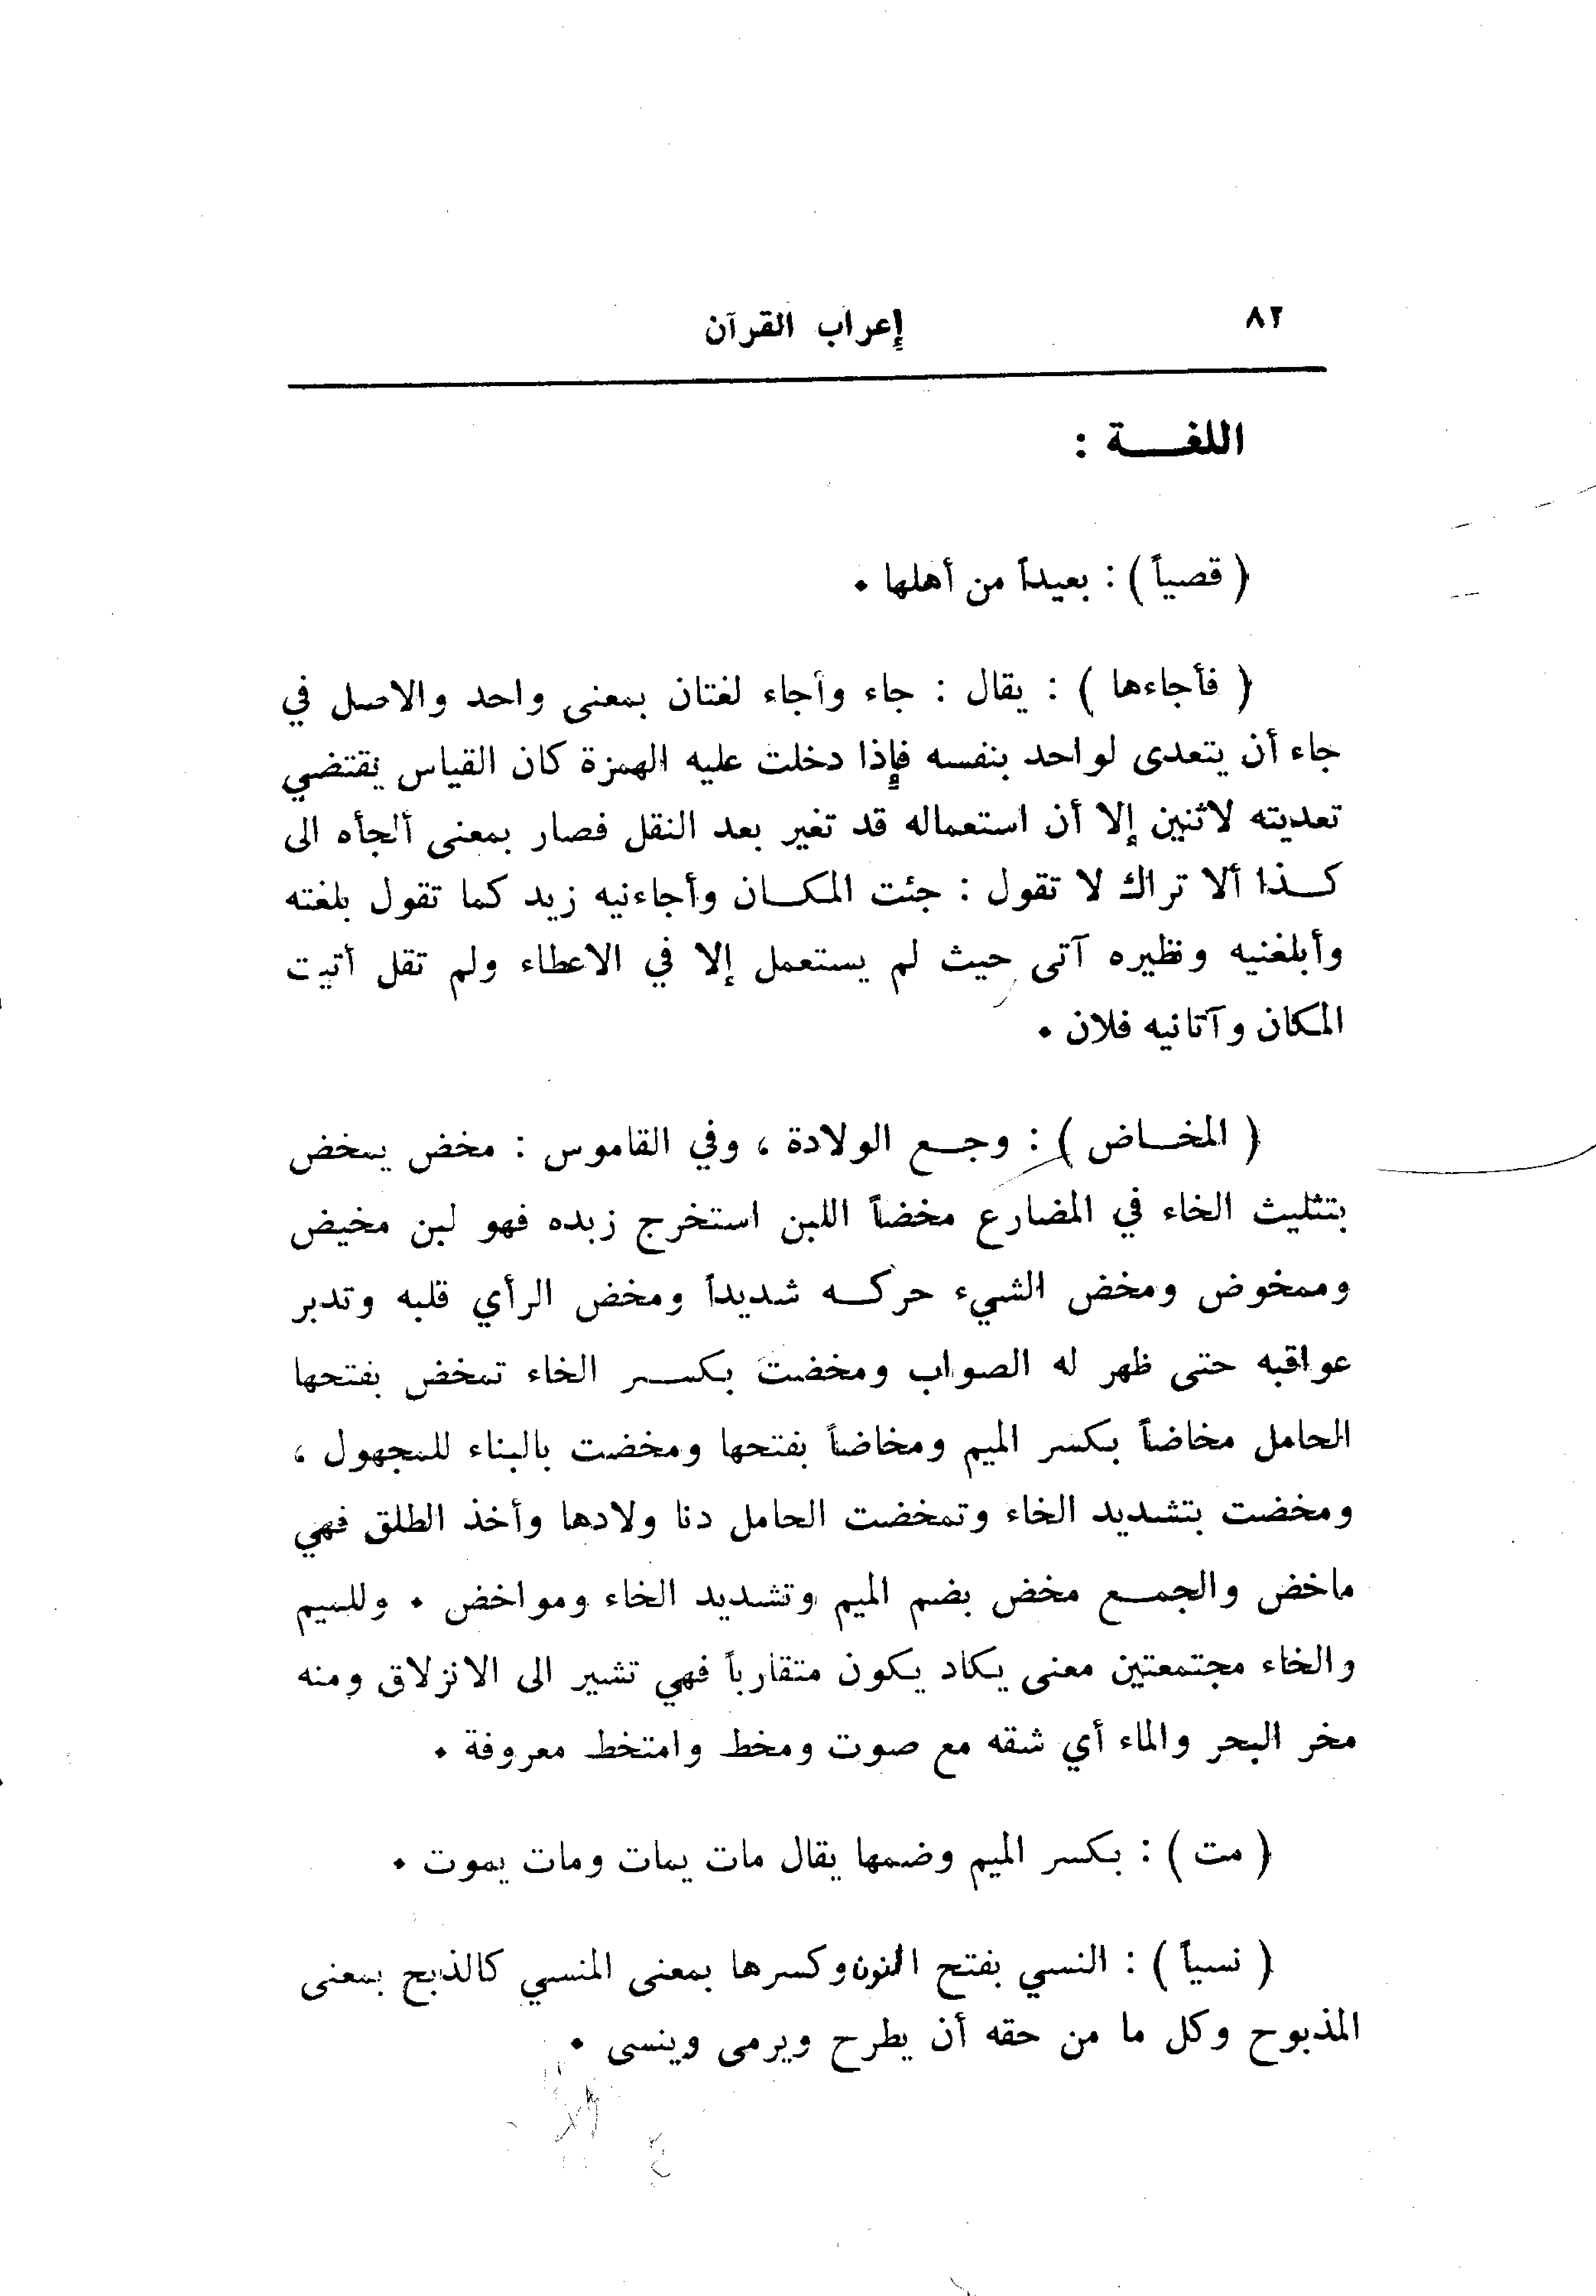 ٨٢
إعراب القرآن
اللغـــة :
( قصياً ) : بعيداً من أهلها .
( فأجاءها ) : يقال : جاء وأجاء لغتان بمعنى واحد والاصل في
جاء أن يتعدى لواحد بنفسه فإذا دخلت عليه الهمزة كان القياس يقتضي
تعديته لاثنين إلا أن استعماله قد تغير بعد النقل فصار بمعنى ألجأه الى
كـذا ألا تراك لا تقول : جئت المكـان وأجاءنيه زيد كما تقول بلغته
وأبلغنيه ونظيره آتى حيث لم يستعمل إلا في الاعطاء ولم تقل أتيت
المكان وآتانيه فلان .
( المخـاض ) : وجـع الولادة ، وفي القاموس : مخض يمخض
بتثليث الخاء في المضارع مخضاً اللبن استخرج زبده فهو لبن مخيض
وممخوض ومخض الشيء حركـه شديداً ومخض الرأي قلبه وتدبر
عواقبه حتى ظهر له الصواب ومخضت بكسـر الخاء تمخض بفتحها
الحامل مخاضاً بكسر الميم ومخاضاً بفتحها ومخضت بالبناء للمجهول ،
ومخضت بتشديد الخاء وتمخضت الحامل دنا ولادها وأخذ الطلق فهي
ماخض والجمـع مخض بضم الميم وتشديد الخاء ومواخض . وللميم
والخاء مجتمعتين معنى يكاد يكون متقارباً فهي تشير الى الانزلاق ومنه
مخر البحر والماء أي شقه مع صوت ومخط وامتخط معروفة .
( مت ) : بكسر الميم وضمها يقال مات يمات ومات يموت .
( نسياً ) : النسي بفتح النون وكسرها بمعنى المنسي كالذبح بمعنى
المذبوح وكل ما من حقه أن يطرح ويرمى وينسى .